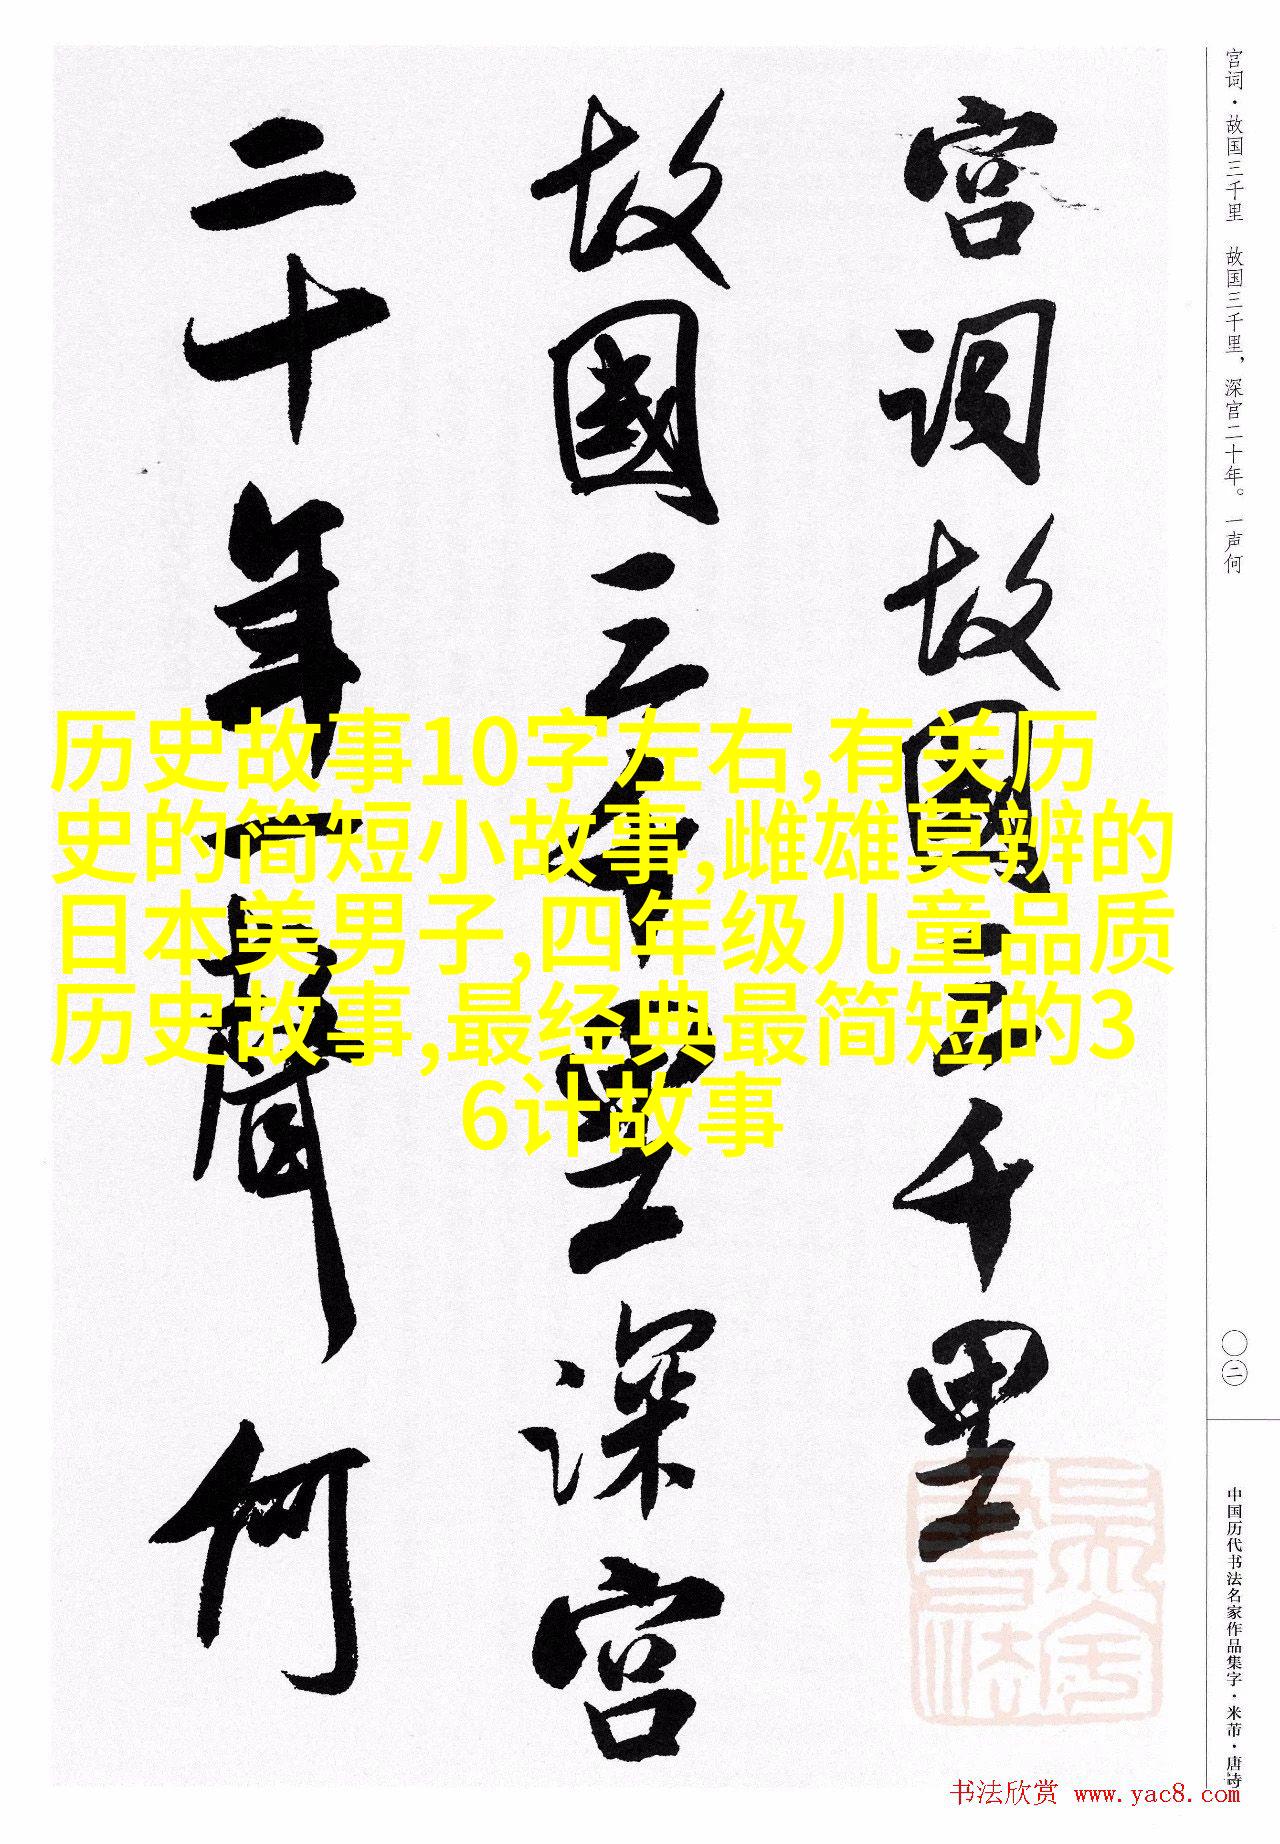 宫词故國三千里
故國三千里深宫
二十年一聲何
宫词·故国三千里 故国三千里，深宫二十年。一声何
历史故事10字左右,有关历
史的简短小故事,雌雄莫辨的
日本美男子,四年级儿童品质
历史故事,最经典最简短的3
6计故事
〇二
中国历代书法名家作品集字·米芾·唐诗
书法欣赏 www.yac8.com